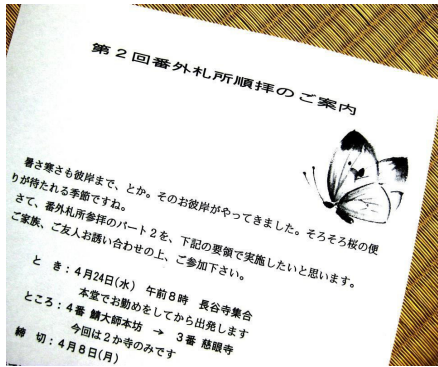 第２回番外札所順拝のご案内
暑さ寒さも彼岸まで、とか。そのお彼岸がやってきました。そろそろ桜の便
りが待たれる季節ですね。
さて、番外札所参拝のパート２を、下記の要領で実施したいと思います。
ご家族、ご友人お誘い合わせの上、ご参加下さい。
と　き：４月24日(水)　午前８時　長谷寺集合
本堂でお勤めをしてから出発します
ところ：４番 鯖大師本坊　→　３番 慈眼寺
今回は２か寺のみです
締　切：４月８日(月)